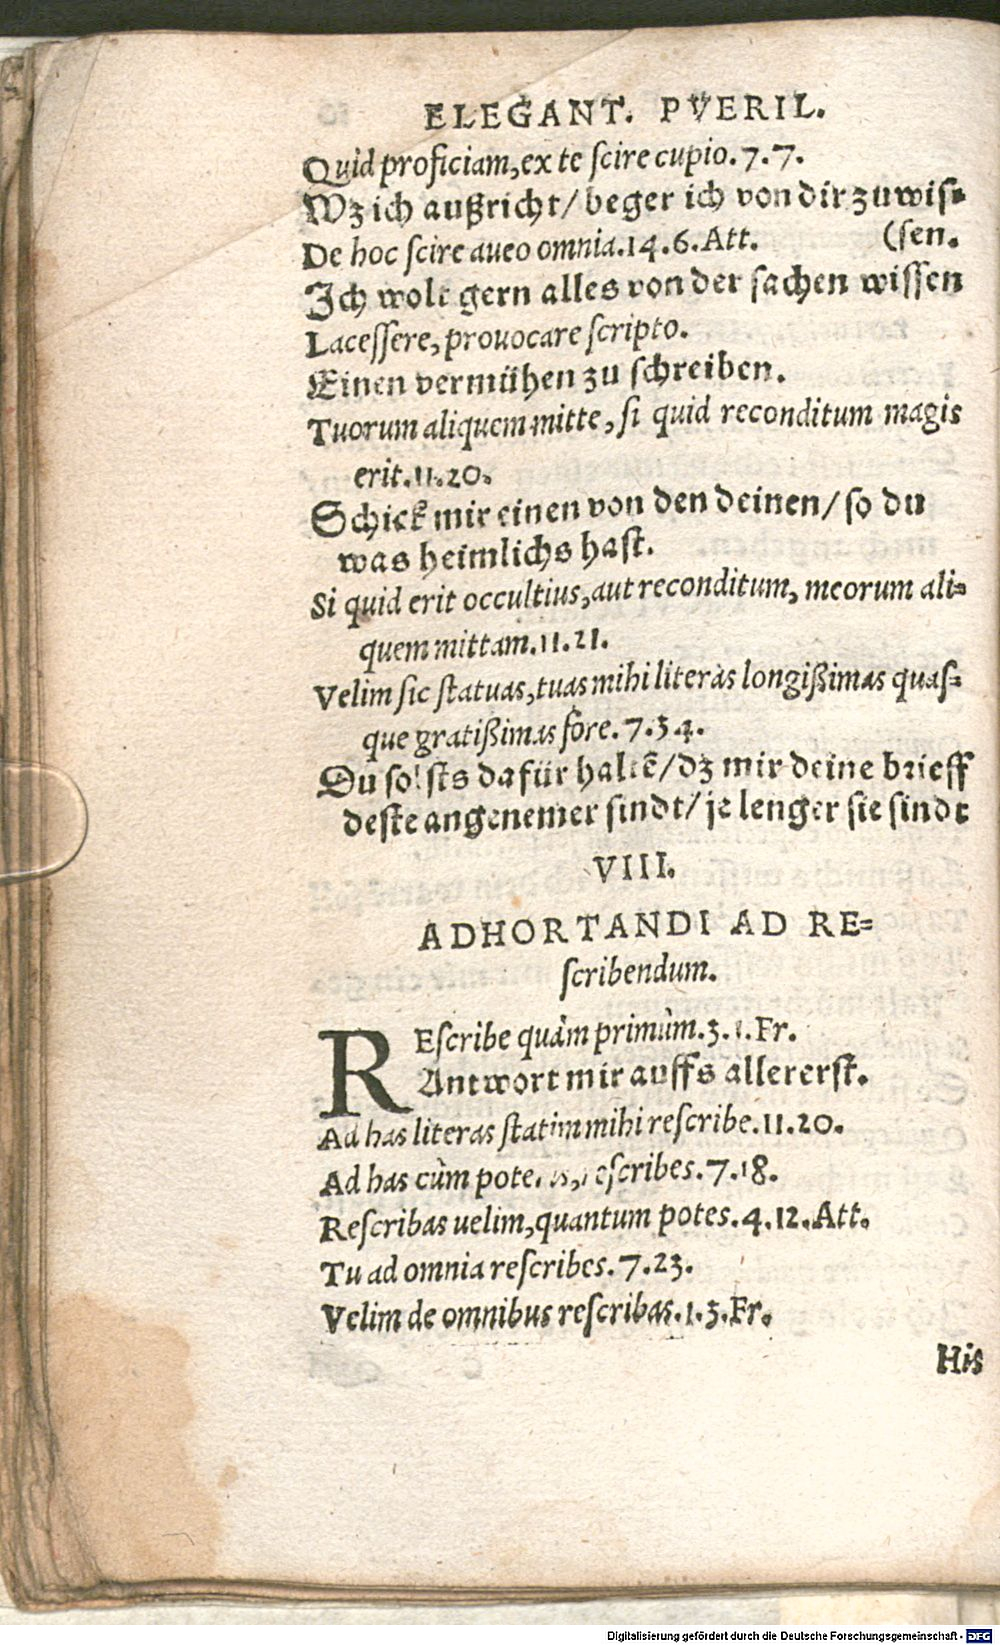 ELEGANT. PVERIL.
Quid proficiam, ex te ſcire cupio. 7. 7.
Wz ich außricht/ beger ich von dir zu wiſ⸗
(ſen.
De hoc ſcire aueo omnia. 14. 6. Att.
Ich wolt gern alles von der ſachen wiſſen
Laceſſere, prouocare ſcripto.
Einen vermühen zu ſchreiben.
Tuorum aliquem mitte, ſi quid reconditum magis
erit. 11. 20.
Schick mir einen von den deinen/ ſo du
was heimlichs haſt.
Si quid erit occultius, aut reconditum, meorum ali⸗
quem mittam. 11. 21.
Velim ſic ſtatuas, tuas mihi literas longißimas quaſ⸗
que gratißimas fore. 7. 34.
Du ſolſts dafür haltẽ/ dz mir deine brieff
deſte angenemer ſindt/ je lenger ſie ſindt
VIII.
ADHORTANDI AD RE⸗
ſcribendum.
REſcribe quàm primùm. 3. 1. Fr.
Antwort mir auffs allererſt.
Ad has literas ſtatim mihi reſcribe. 11. 20.
Ad has cùm poteris, reſcribes. 7. 18.
Reſcribas uelim, quantum potes. 4. 12. Att.
Tu ad omnia reſcribes. 7. 23.
Velim de omnibus reſcribas. 1. 3. Fr.
His
Digitalisierung gefördert durch die Deutsche Forschungsgemeinschaft - DFG